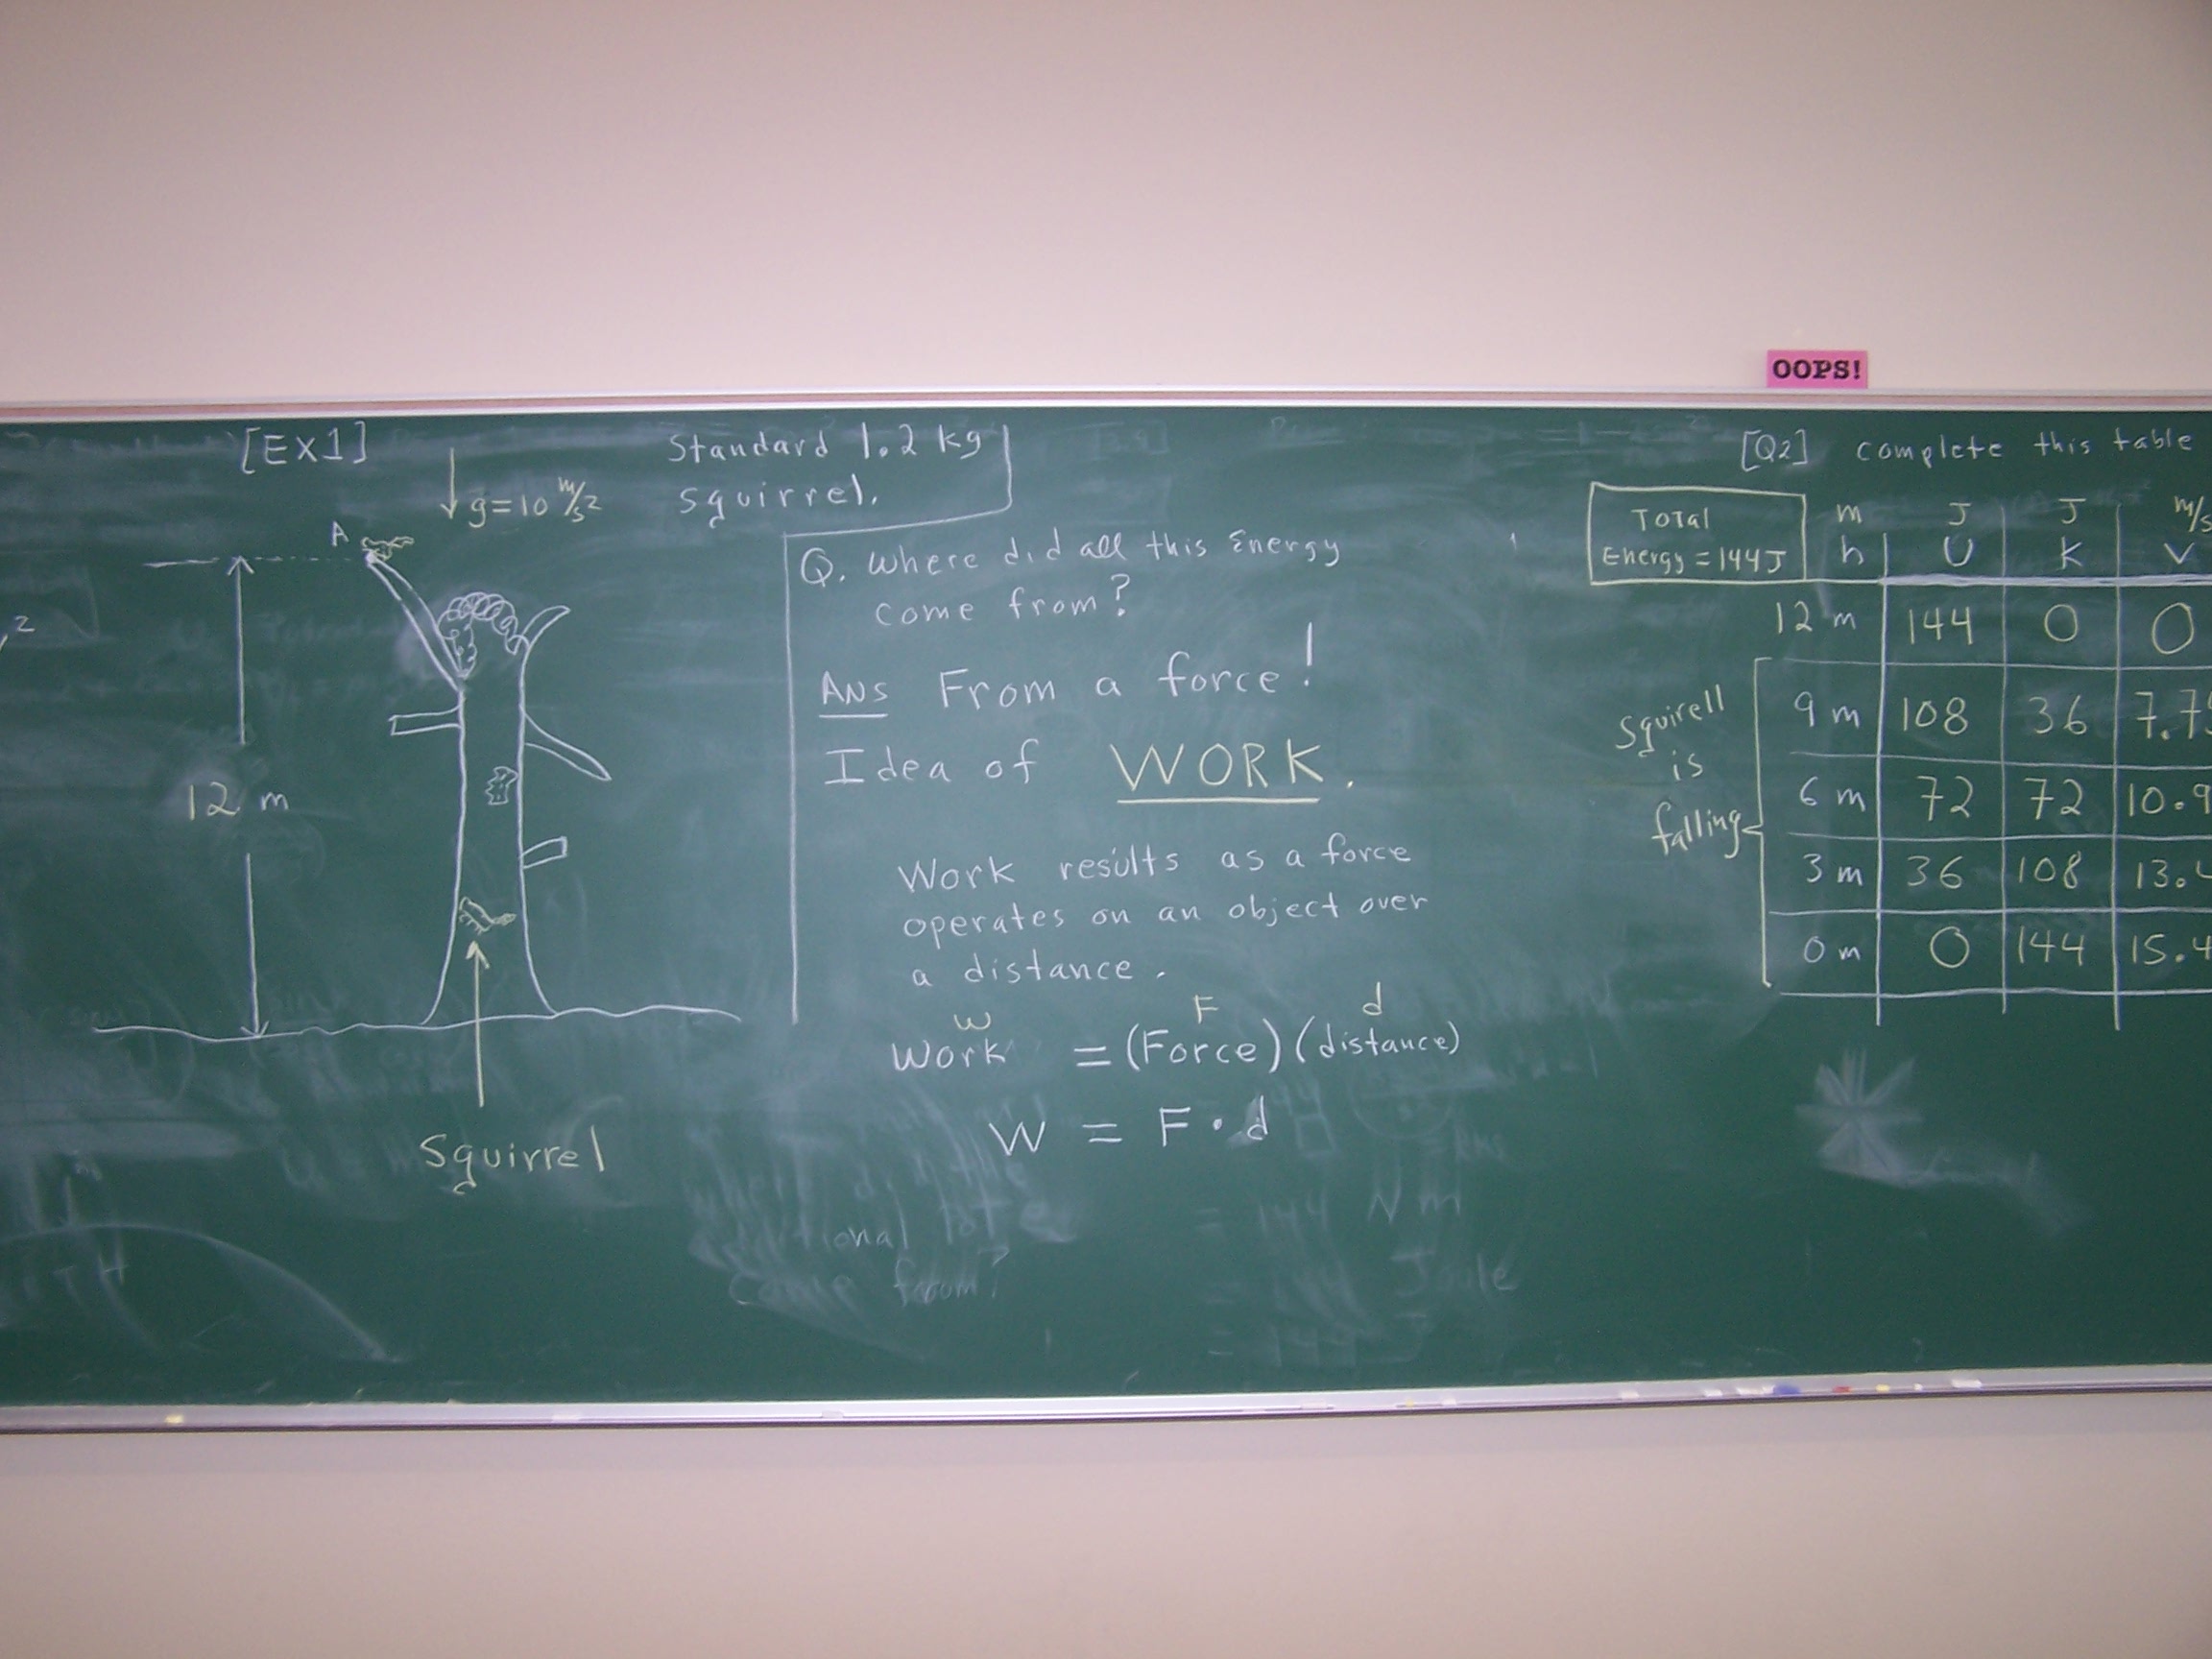 OOPS!
[EX1]
g=10 m/s2
A
12 m
Squirrel
Standard 1.2 kg
squirrel.
Q. Where did all this Energy
come from?
Ans From a force!
Idea of WORK.
Work results as a force
operates on an object over
a distance.
w F d
Work = (Force)(distance)
W = F·d
= 144 Nm
= 144 Joule
come from?
2
[Q2] complete this table
Total
Energy = 144J
m J J m/s
h U K V
12 m 144 0 0
9 m 108 36 7.7
6 m 72 72 10.9
3 m 36 108 13.4
0 m 0 144 15.4
Squirell
is
falling